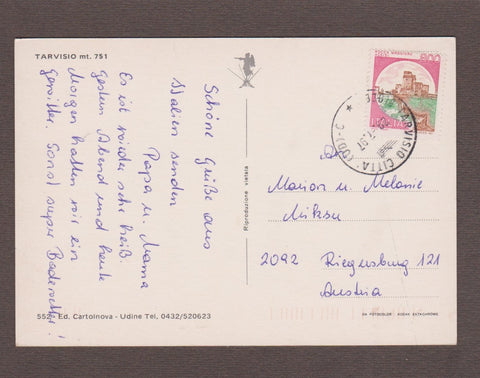 TARVISIO mt. 751
Schöne Grüße aus
Italien senden
Papa u. Mama
Es ist wieder sehr heiß.
Gestern Abend und heute
Morgen hatten wir ein
Gewitter. Sonst super Badewetter!
552 Ed. Cartolnova - Udine Tel. 0432/520623
Riproduzione vietata
TARVISIO CITTA (UD)
Marion u. Melanie
Miksu
2092 Riegersburg 121
Austria